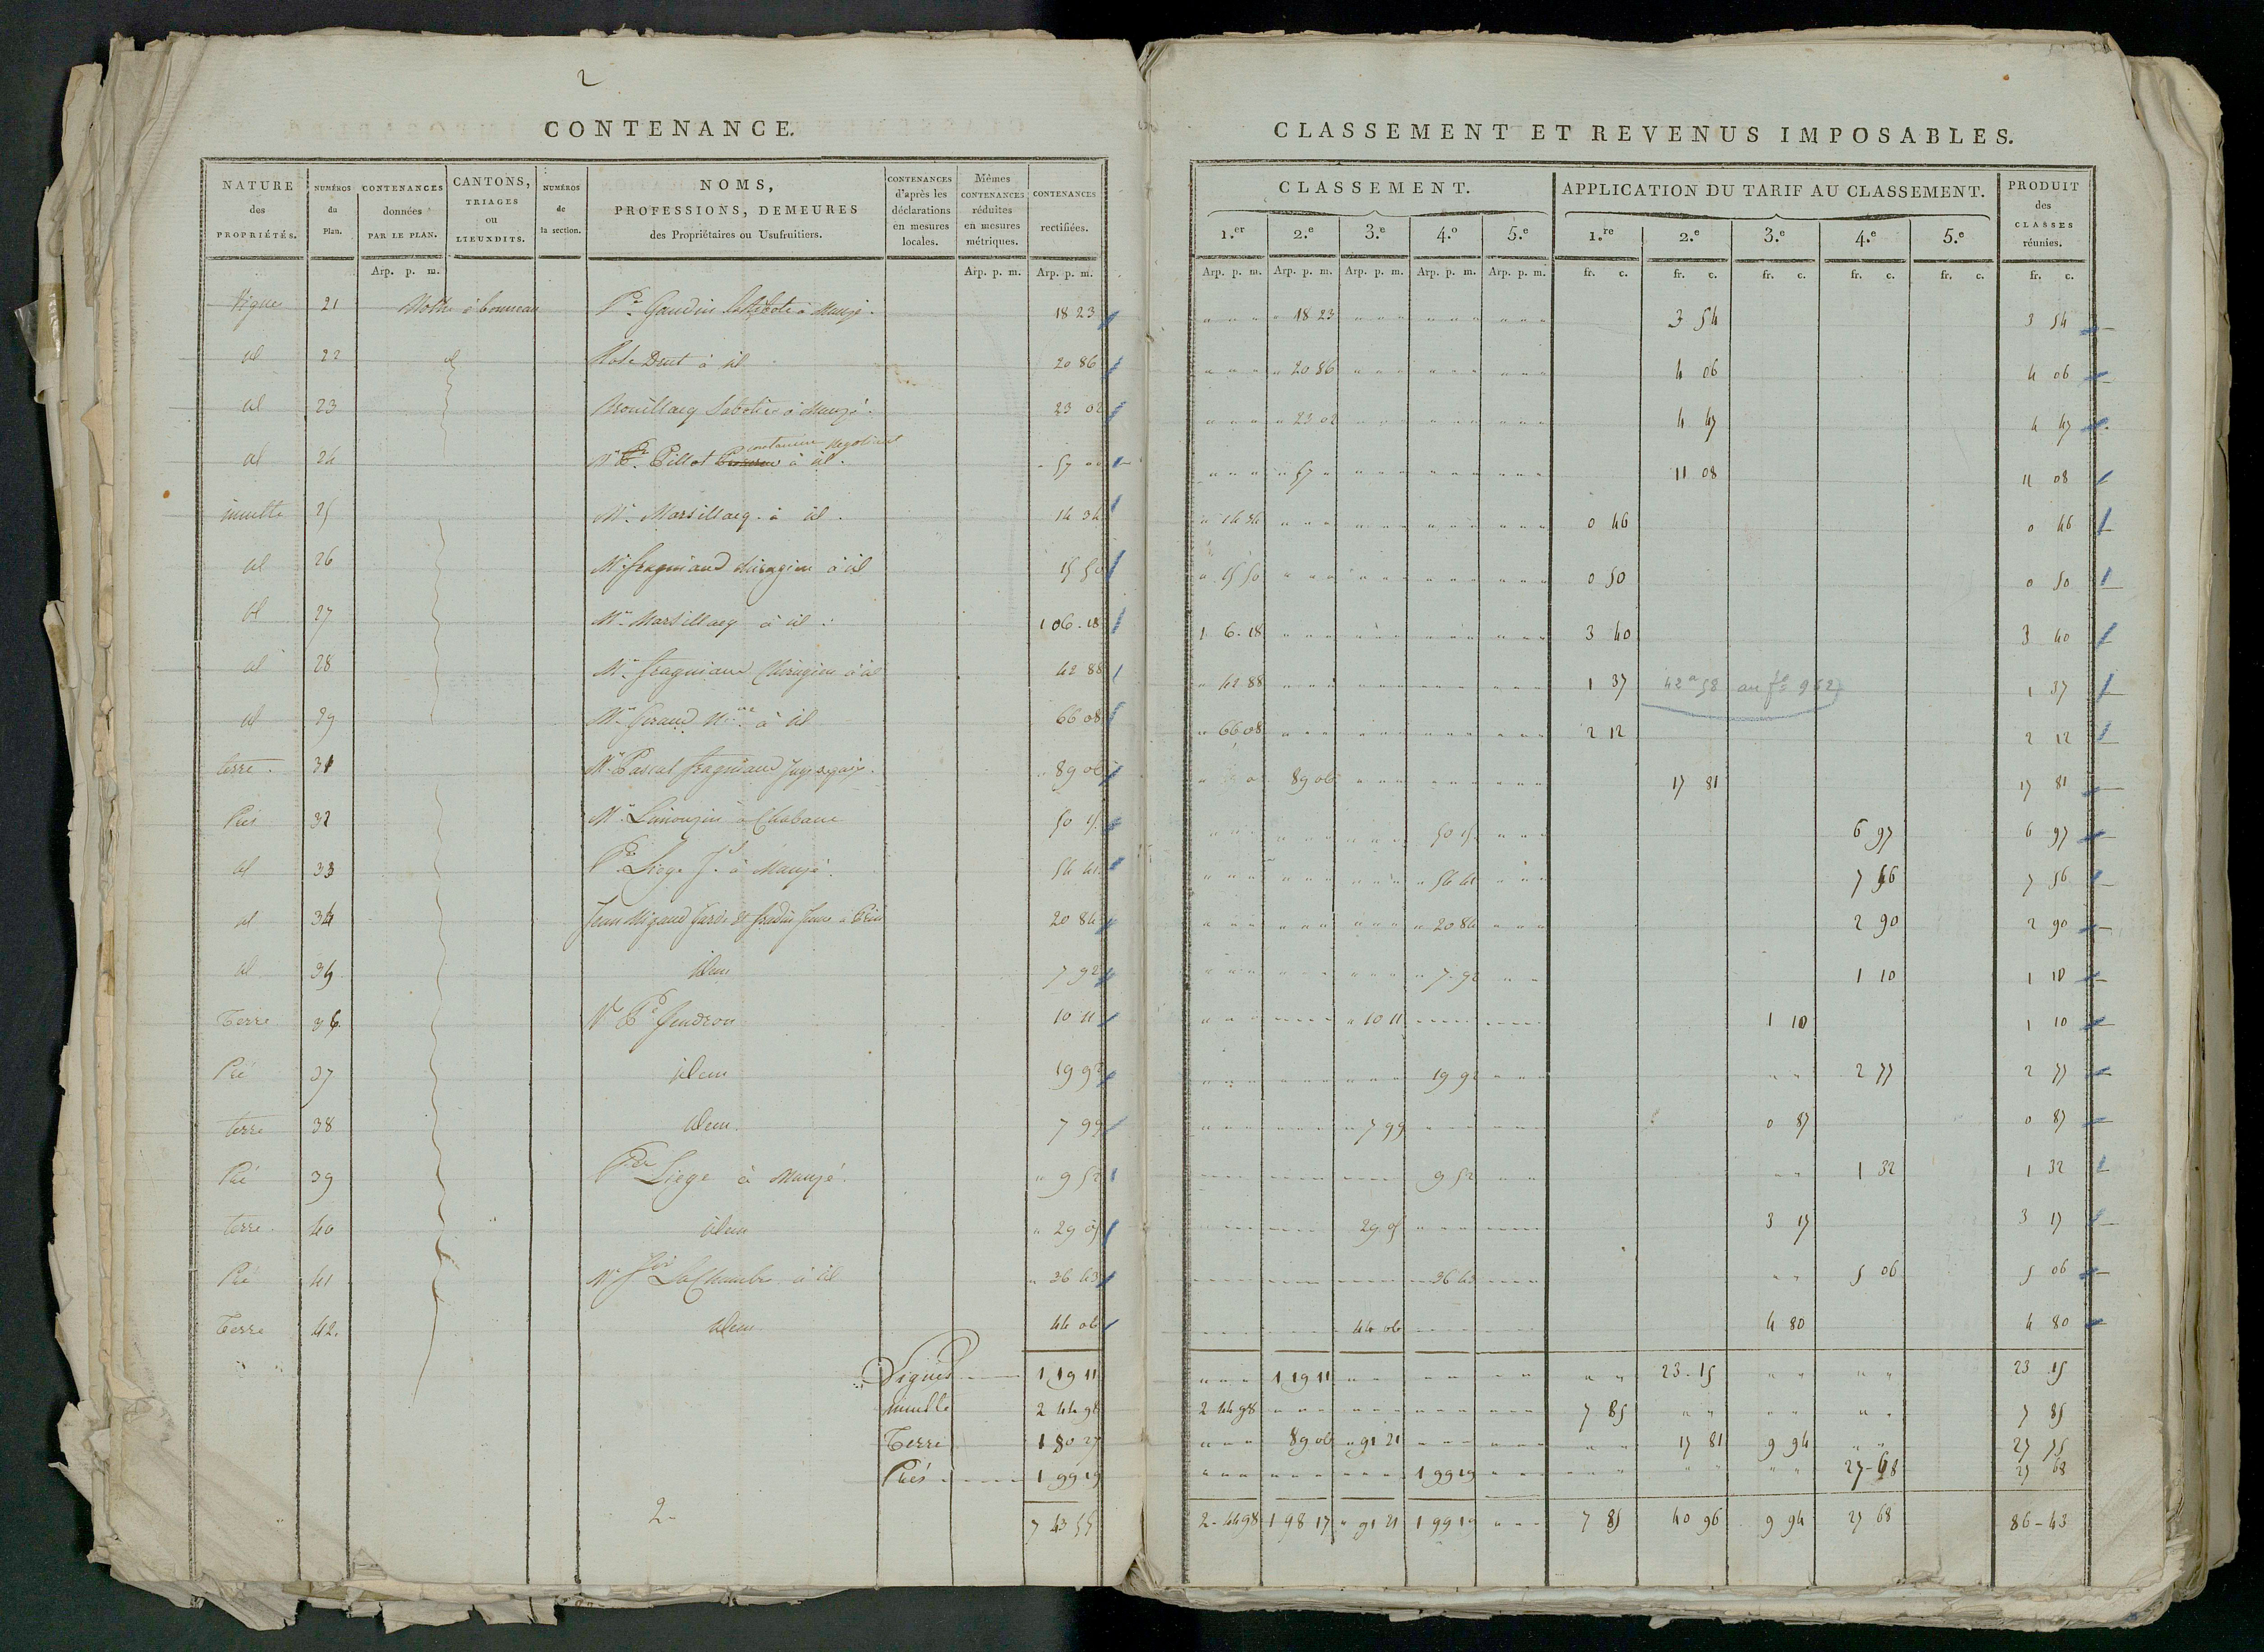 2
CONTENANCE.
NATURE des PROPRIÉTÉS.
NUMÉROS du Plan.
CONTENANCES données PAR LE PLAN.
CANTONS, TRIAGES ou LIEUXDITS.
NUMÉROS de la section.
NOMS, PROFESSIONS, DEMEURES des Propriétaires ou Usufruitiers.
CONTENANCES d'après les déclarations en mesures locales.
Mêmes CONTENANCES réduites en mesures métriques.
CONTENANCES rectifiées.
Arp. p. m. Arp. p. m. Arp. p. m.
Vigne 21 Motte à bonneau Pre. Gaudin à Mauzé. 18 23
id 22 id à id 20 86
id 23 Brouillacq Sabotier à Mauzé. 23 02
Constantin Negotiant
id 24 Pillot à id. 57 "
inculte 25 Mr. Marsillacq à id. 14 34
id 26 Mr. fragniaud chirugien à id 15 50
id 27 Mr. Marsillacq à id. 1 06 18
id 28 Mr. fragniaud Chirugien à id 42 88
id 29 Mr. Giraud à id 66 08
terre 31 Mr. Pascal fragniaud juge de paix. 89 06
Prés 32 Mr. Limouzin à Chaban 50 15
id 33 Pre. Liege Je. à Mauzé. 54 41
id 34 Jean Migaud 20 84
id 35 idem 7 92
Terre 36 Gendron 10 11
Pré 37 idem 19 92
terre 38 idem. 7 99
Pré 39 Pre Liege à Mauzé. " 9 52
terre 40 idem " 29 05
Pré 41 LaChambre à id " 36 43
Terre 42. idem 44 06
Vignes 1 19 11
inculte 2 44 98
Terre 1 80 27
Prés 1 99 19
2 7 43 55
CLASSEMENT ET REVENUS IMPOSABLES.
CLASSEMENT. APPLICATION DU TARIF AU CLASSEMENT. PRODUIT des CLASSES réunies.
1.er 2.e 3.e 4.e 5.e 1.re 2.e 3.e 4.e 5.e
Arp. p. m. Arp. p. m. Arp. p. m. Arp. p. m. Arp. p. m. fr. c. fr. c. fr. c. fr. c. fr. c. fr. c.
18 23 3 54 3 54
20 86 4 06 4 06
23 02 4 47 4 47
57 " 11 08 11 08
14 34 0 46 0 46
15 50 0 50 0 50
1 6 18 3 40 3 40
42 88 1 37 42a 58 au fo 962 1 37
66 08 2 12 2 12
89 06 17 81 17 81
50 15 6 97 6 97
54 41 7 56 7 56
20 84 2 90 2 90
7 92 1 10 1 10
10 11 1 10 1 10
19 92 2 77 2 77
7 99 0 87 0 87
9 52 1 32 1 32
29 05 3 17 3 17
36 43 5 06 5 06
44 06 4 80 4 80
1 19 11 23 15 23 15
2 44 98 7 85 7 85
89 06 " 91 21 17 81 9 94 27 75
1 99 19 27 68 27 68
2 44 98 1 98 17 " 91 21 1 99 19 7 85 40 96 9 94 27 68 86 - 43